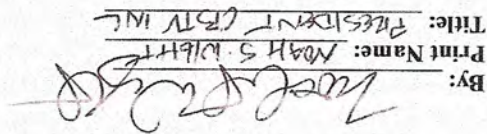 By:
Print Name: NOAH S. WIGHT
Title: PRESIDENT CBTV INC